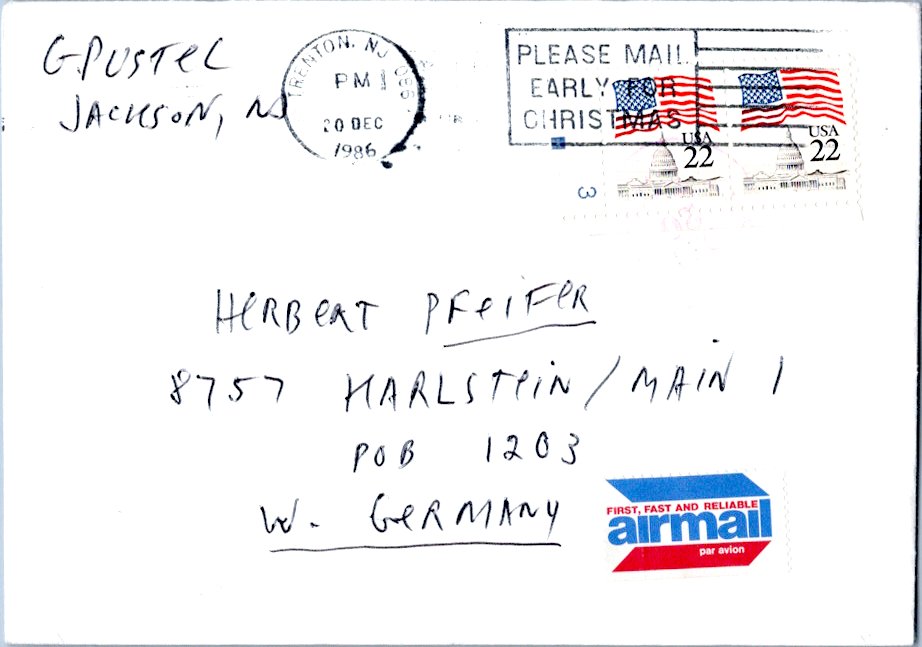 G. PUSTEL
JACKSON, NJ
TRENTON, NJ 086
PM
20 DEC
1986
PLEASE MAIL
EARLY FOR
CHRISTMAS
USA
22
USA
22
3
HERBERT PFEIFER
8757 KARLSTEIN / MAIN 1
POB 1203
W. GERMANY
FIRST, FAST AND RELIABLE
airmail
par avion